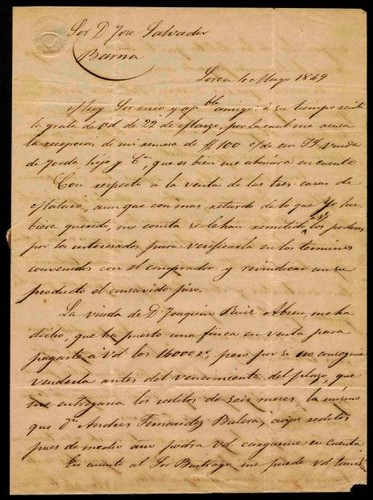 Sor D José Salvador
Barna
Lorca 4 Mayo 1849
Muy Sor mio y apble amigo: á su tiempo recibí
la grata de vd de 22 de Marzo, por la cual me acusa
la recepcion de mi remesa de 100 c/o con Sres Viuda
de hijo y Ca, que es bien me abonará en cuenta
Con respecto á la venta de las tres casas de
Mataró, aun que con mas retardo de lo que yo hu
biera querido, me consta se le han remitido los poderes
por la interesada, para verificarla en los terminos
convenidos con el comprador y reivindicar en su
producto el consavido piso.
La viuda de D. Joaquin Ruiz Abreu, me ha
dicho, que ha puesto una finca en venta para
pagarle á Vd los 16000 rs, pero por si no consigue
venderla antes del vencimiento del plazo, que
me entregaria los reditos de seis meses, lo mismo
que Dn Andres Fernandez cuyos reditos
pues de medio año podrá vd cargarme en cuenta
En cuanto al Sor me puede vd